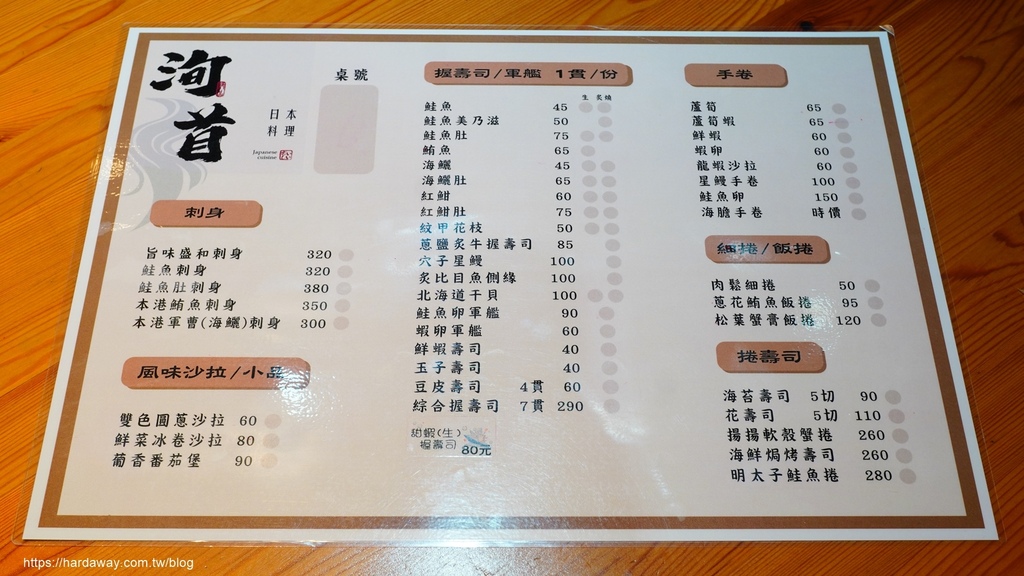 洵首
日本
料理
Japanese
cuisine
桌號
刺身
旨味盛和刺身 320
鮭魚刺身 320
鮭魚肚刺身 380
本港鮪魚刺身 350
本港軍曹(海鱺)刺身 300
風味沙拉/小品
雙色圓蔥沙拉 60
鮮菜冰卷沙拉 80
葡香番茄堡 90
握壽司/軍艦 1貫/份
生 炙燒
鮭魚 45
鮭魚美乃滋 50
鮭魚肚 75
鮪魚 65
海鱺 45
海鱺肚 65
紅魽 60
紅魽肚 75
紋甲花枝 50
蔥鹽炙牛握壽司 85
穴子星鰻 100
炙比目魚側緣 100
北海道干貝 100
鮭魚卵軍艦 90
蝦卵軍艦 60
鮮蝦壽司 40
玉子壽司 40
豆皮壽司 4貫 60
綜合握壽司 7貫 290
甜蝦(生)
握壽司 80元
手卷
蘆筍 65
蘆筍蝦 65
鮮蝦 60
蝦卵 60
龍蝦沙拉 60
星鰻手卷 100
鮭魚卵 150
海膽手卷 時價
細捲/飯捲
肉鬆細捲 50
蔥花鮪魚飯捲 95
松葉蟹膏飯捲 120
捲壽司
海苔壽司 5切 90
花壽司 5切 110
揚揚軟殼蟹捲 260
海鮮焗烤壽司 260
明太子鮭魚捲 280
https://hardaway.com.tw/blog